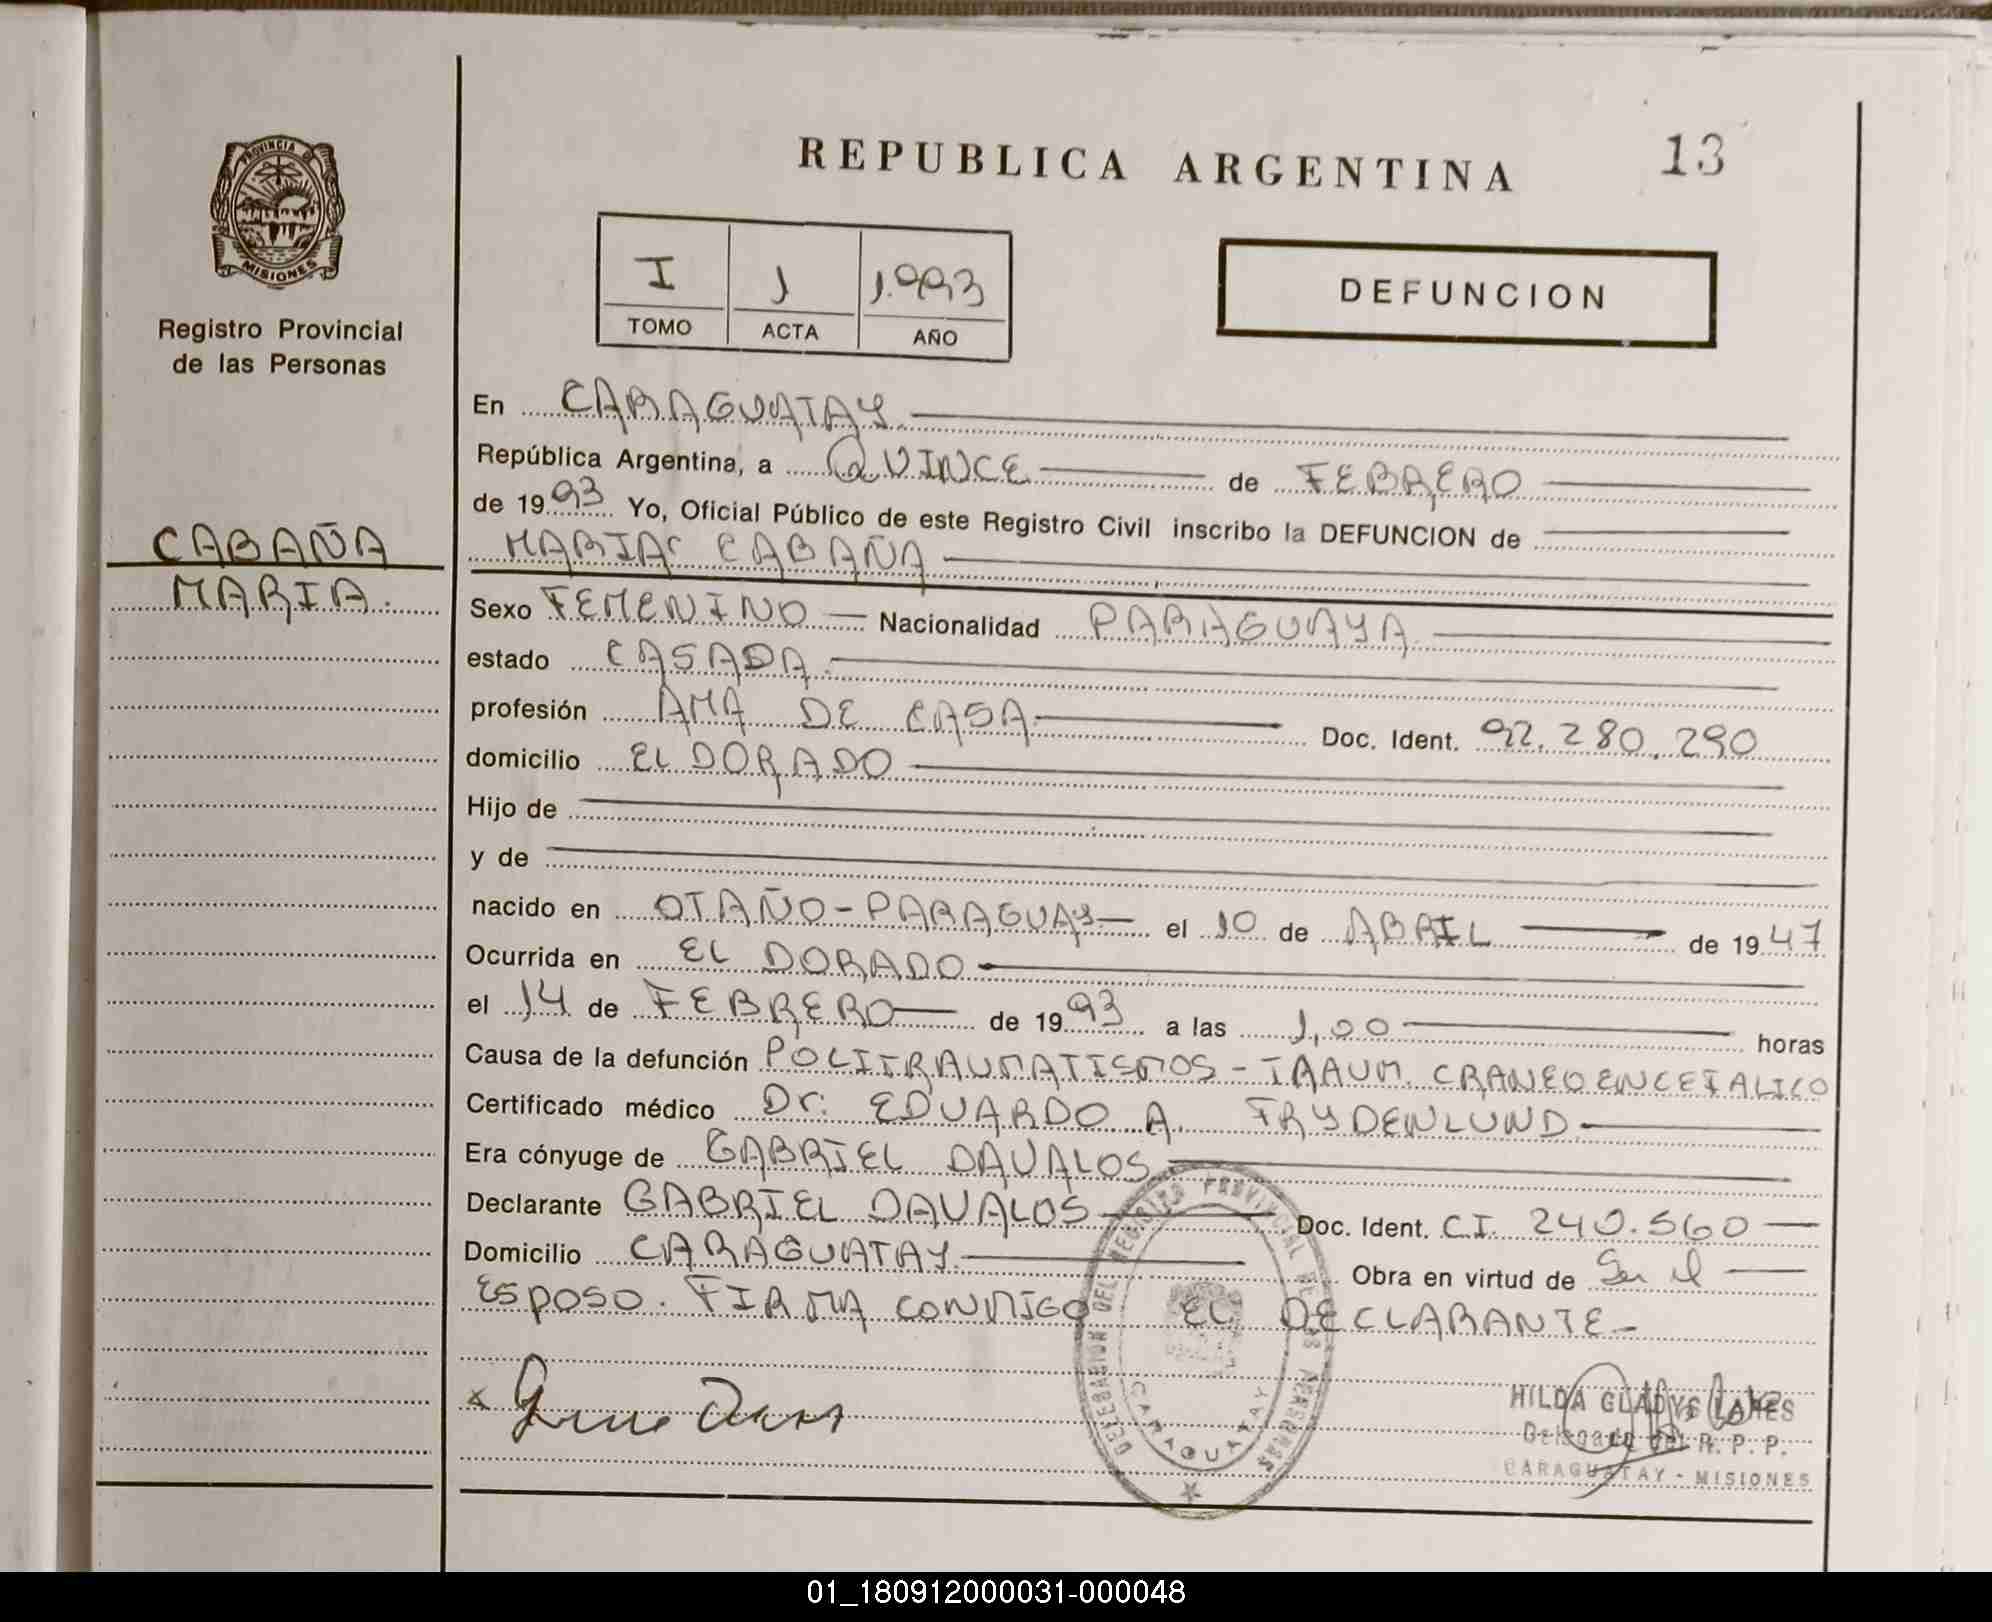 REPUBLICA ARGENTINA 13
PROVINCIA DE
MISIONES
Registro Provincial
de las Personas
I J 1.993
TOMO ACTA AÑO
DEFUNCION
En CARAGUATAY
República Argentina, a QUINCE de FEBRERO
de 1993 Yo, Oficial Público de este Registro Civil inscribo la DEFUNCION de
MARIA CABAÑA
CABAÑA
MARIA.
Sexo FEMENINO Nacionalidad PARAGUAYA
estado CASADA
profesión AMA DE CASA Doc. Ident. 92.280.290
domicilio ELDORADO
Hijo de
y de
nacido en OTAÑO-PARAGUAY el 10 de ABRIL de 1947
Ocurrida en EL DORADO
el 14 de FEBRERO de 1993 a las 1,00 horas
Causa de la defunción POLITRAUMATISMOS - TRAUM. CRANEOENCEFALICO
Certificado médico Dr: EDUARDO A. FRYDENLUND
Era cónyuge de GABRIEL DAVALOS
Declarante GABRIEL DAVALOS Doc. Ident. C.I. 240.560
Domicilio CARAGUATAY Obra en virtud de Ser el
ESPOSO. FIRMA CONMIGO EL DECLARANTE
DELEGACION DEL REGISTRO PROVINCIAL DE LAS PERSONAS
CARAGUATAY
HILDA GLADYS
Delegada del R. P. P.
CARAGUATAY - MISIONES
01_180912000031-000048